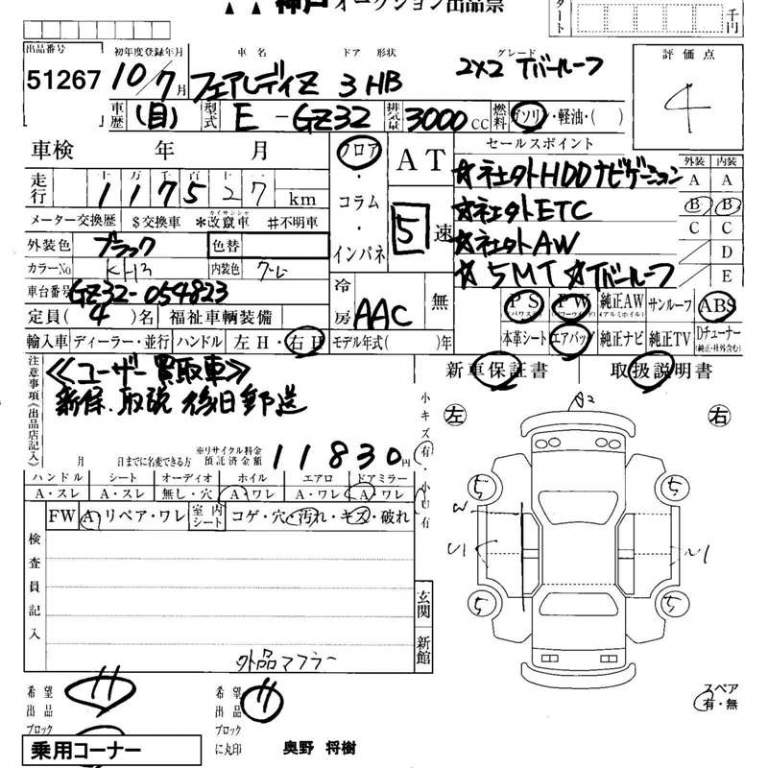 神戸オークション出品票
スタート 千円
出品番号 初年度登録年月 車名 ドア 形状 グレード 評価点
51267 10/7月 フェアレディZ 3HB 2×2 Tバールーフ 4
車歴 (自) 型式 E-GZ32 排気量 3000cc 燃料 ガソリン・軽油・( )
車検 年 月 フロア AT セールスポイント 外装 内装
走行 117527 km ・コラム・インパネ 5速 ☆社外HDDナビゲーション A A
メーター交換歴 $交換車 *改竄車 #不明車 ☆社外ETC B B
外装色 ブラック 色替 ☆社外AW C C
カラーNo KH3 内装色 グレー ☆5MT ☆Tバールーフ D
E
車台番号 GZ32-054823 冷房 AAC 無
定員( 4 )名 福祉車輌装備 PS PW 純正AW サンルーフ ABS
(パワステ) (パワーウインド) (アルミホイル)
輸入車 ディーラー・並行 ハンドル 左H・右H モデル年式( )年 本革シート エアバッグ 純正ナビ 純正TV Dチューナー
(純正・社外含む)
注意事項(出品店記入) 《ユーザー買取車》 新車保証書 取扱説明書
新保、取説 後日郵送 左 右
A2
小キズ有・小凹有
月 日までに名変できる方 ※リサイクル料金預託済金額 11830円
ハンドル シート オーディオ ホイル エアロ ドアミラー
A・スレ A・スレ 無し・穴 A・ワレ A・ワレ A・ワレ
FW A・リペア・ワレ 室内シート コゲ・穴・汚れ・キズ・破れ
5 5
W
U1
5 5
検査員記入
外品マフラー
玄関
新館
希望出品ブロック 11 希望出品ブロックに丸印 11
スペア
有・無
乗用コーナー 奥野 将樹